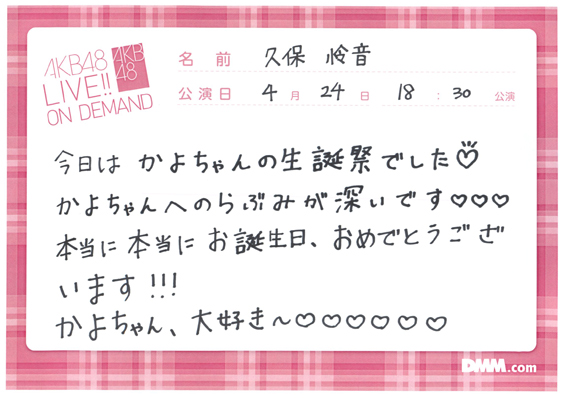 AKB48
LIVE!!
ON DEMAND
AKB
48
名 前 久保 怜音
公演日 4 月 24 日 18 : 30 公演
今日は かよちゃんの生誕祭でした♡
かよちゃんへのらぶみが深いです♡♡♡
本当に本当にお誕生日、おめでとうござ
います!!!
かよちゃん、大好き〜♡♡♡♡♡♡
DMM.com